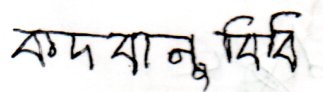 কদ বানু বিবি